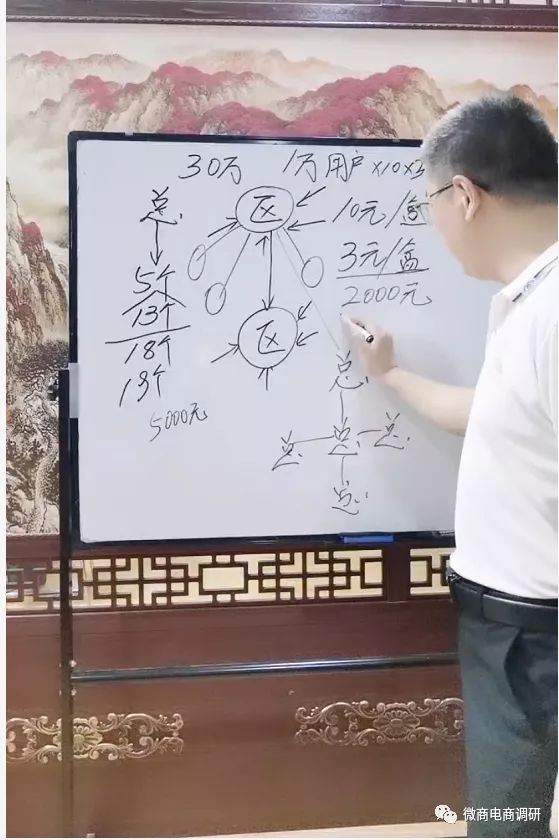 30万 1万用户 ×10×3
总
区
10元/盒
3元/盒
5个
2000元
13个
18个
区
13个
5000元
总
总 总 总
总
微商电商调研